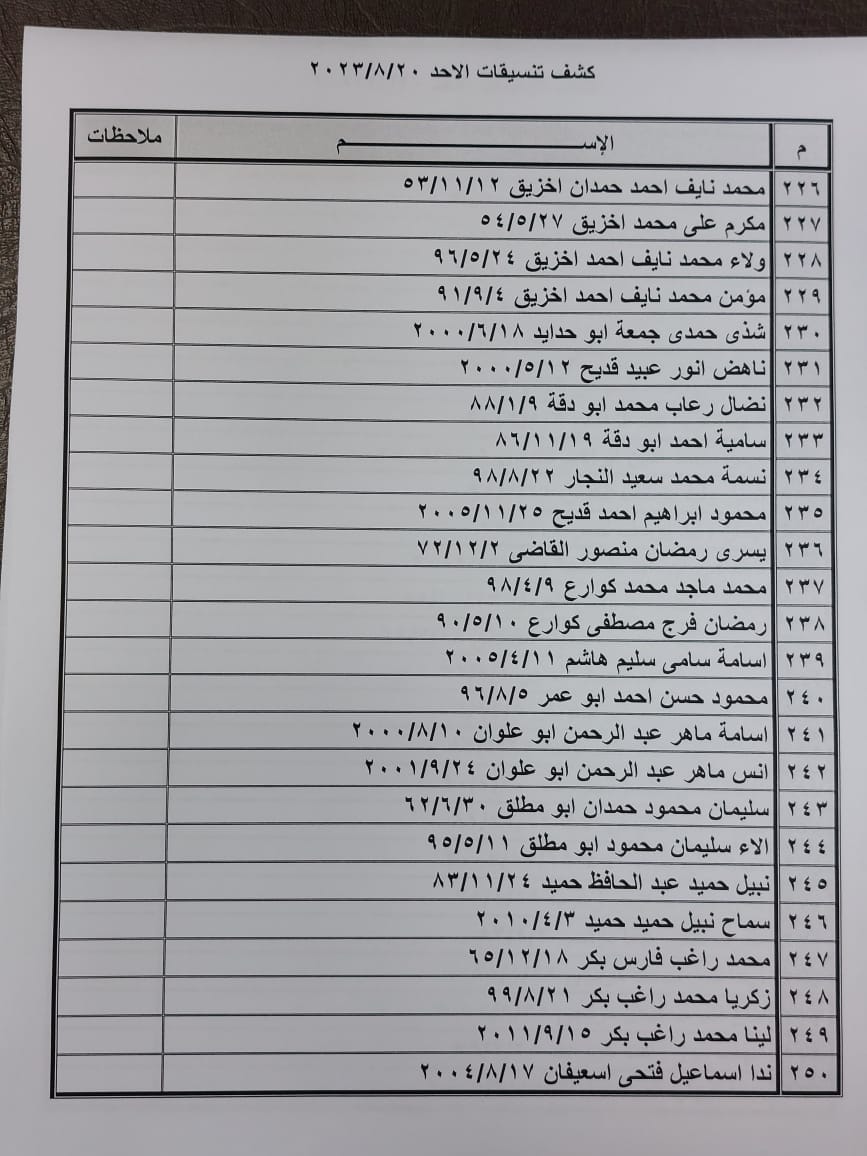 كشف تنسيقات الاحد ٢٠٢٣/٨/٢٠
م الإســـم ملاحظات
٢٢٦ محمد نايف احمد حمدان اخزيق ٥٣/١١/١٢
٢٢٧ مكرم على محمد اخزيق ٥٤/٥/٢٧
٢٢٨ ولاء محمد نايف احمد اخزيق ٩٦/٥/٢٤
٢٢٩ مؤمن محمد نايف احمد اخزيق ٩١/٩/٤
٢٣٠ شذى حمدى جمعة ابو حدايد ٢٠٠٠/٦/١٨
٢٣١ ناهض انور عبيد قديح ٢٠٠٠/٥/١٢
٢٣٢ نضال رعاب محمد ابو دقة ٨٨/١/٩
٢٣٣ سامية احمد ابو دقة ٨٦/١١/١٩
٢٣٤ نسمة محمد سعيد النجار ٩٨/٨/٢٢
٢٣٥ محمود ابراهيم احمد قديح ٢٠٠٥/١١/٢٥
٢٣٦ يسرى رمضان منصور القاضى ٧٢/١٢/٢
٢٣٧ محمد ماجد محمد كوارع ٩٨/٤/٩
٢٣٨ رمضان فرج مصطفى كوارع ٩٠/٥/١٠
٢٣٩ اسامة سامى سليم هاشم ٢٠٠٥/٤/١١
٢٤٠ محمود حسن احمد ابو عمر ٩٦/٨/٥
٢٤١ اسامة ماهر عبد الرحمن ابو علوان ٢٠٠٠/٨/١٠
٢٤٢ انس ماهر عبد الرحمن ابو علوان ٢٠٠١/٩/٢٤
٢٤٣ سليمان محمود حمدان ابو مطلق ٦٢/٦/٣٠
٢٤٤ الاء سليمان محمود ابو مطلق ٩٥/٥/١١
٢٤٥ نبيل حميد عبد الحافظ حميد ٨٣/١١/٢٤
٢٤٦ سماح نبيل حميد حميد ٢٠١٠/٤/٣
٢٤٧ محمد راغب فارس بكر ٦٥/١٢/١٨
٢٤٨ زكريا محمد راغب بكر ٩٩/٨/٢١
٢٤٩ لينا محمد راغب بكر ٢٠١١/٩/١٥
٢٥٠ ندا اسماعيل فتحى اسعيفان ٢٠٠٤/٨/١٧